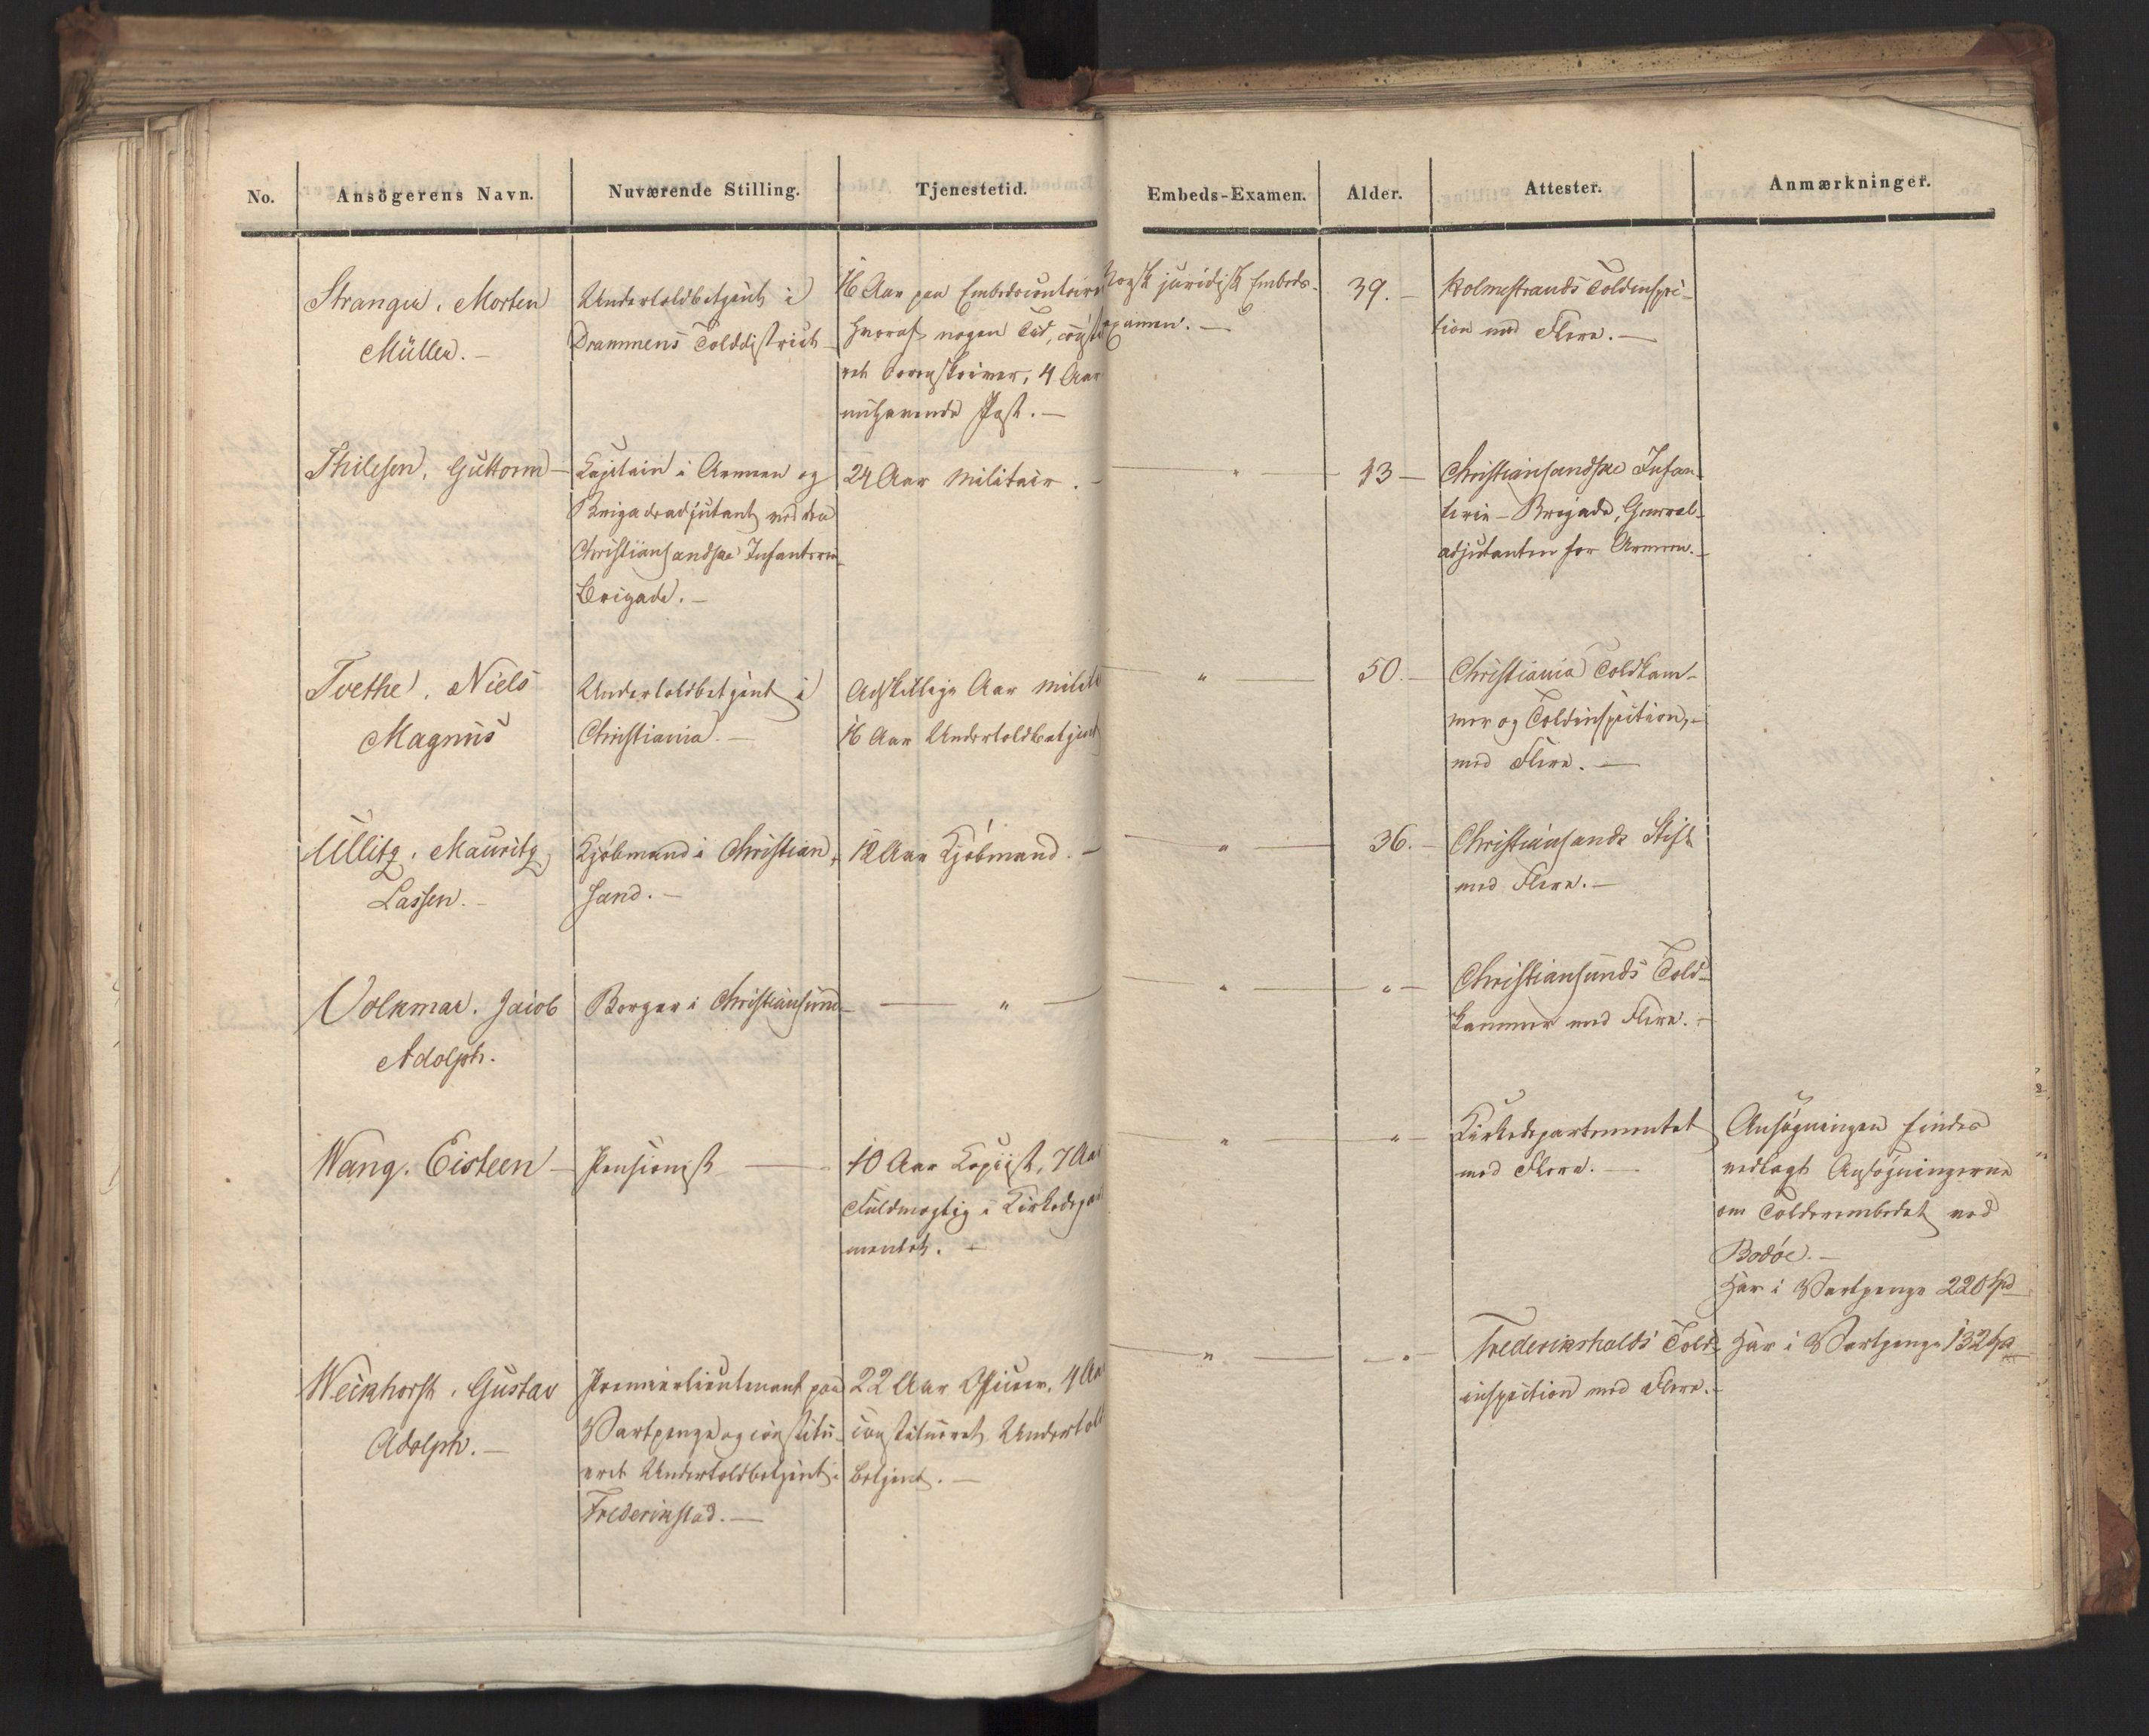 No.
Ansögerens Navn.
Nuværende Stilling.
Tjenestetid.
Embeds-Examen.
Alder.
Attester.
Anmærkninger.
Stranger, Morten
Müller. —
Undertoldbetjent i
Drammens Tolddistrict
16 Aar paa Embedscontoirer
hvoraf nogen Tid, const
ret Sorenskriver, 4 Aar
nuhavende Post. —
Norsk juridisk Embeds-
examen. —
39. —
Holmestrands Toldinspec-
tion med Flere. —
Thilesen, Guttorm —
Capitain i Armeen og
Brigadeadjutant ved den
Christiansandske Infanterie
Brigade. —
24 Aar Militair. —
— " —
43 —
Christiansandske Infan-
terie-Brigade, General-
adjutanten for Armeen. —
Tvethe, Niels
Magnus
Undertoldbetjent i
Christiania. —
Adskillige Aar Milit
16 Aar Undertoldbetjent
— " —
50. —
Christiania Toldkam-
mer og Toldinspection, —
med Flere. —
Ullitz, Mauritz
Lassen. —
Kjøbmand i Christian-
sand. —
12 Aar Kjøbmand. —
— " —
36. —
Christiansands Stift
med Flere. —
Volkmar, Jacob
Adolph.
Borger i Christiansund —
— " —
— " —
" —
Christiansunds Told-
kammer med Flere. —
Wang, Eisteen —
Pensionist —
10 Aar Copiist, 7 Aar
Fuldmægtig i Kirkedepar
mentet. —
"
" —
Kirkedepartementet
med Flere. —
Ansøgningen findes
vedlagt Ansøgningerne
om Tolderembedet ved
Bodöe. —
Har i Vartpenge 220 Spd
Weickhorst, Gustav
Adolph. —
Premierlieutenant paa
Vartpenge og constitu-
eret Undertoldbetjent i
Frederikstad. —
22 Aar Officier, 4 Aar
constitueret Undertold
betjent. —
— " —
— " —
Frederikshalds Told-
inspection med Flere. —
Har i Vartpenge 132 Spd